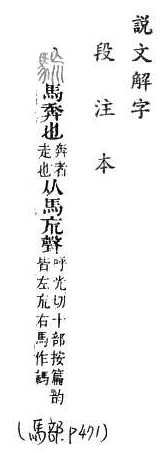 說文解字
段注本
馬奔也奔者走也从馬巟聲呼光切十部按篇韵皆左巟右馬作
(馬部.P471)